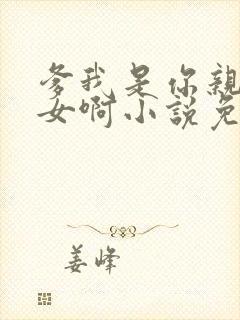 爹我是你親
女啊小説免
姜峰